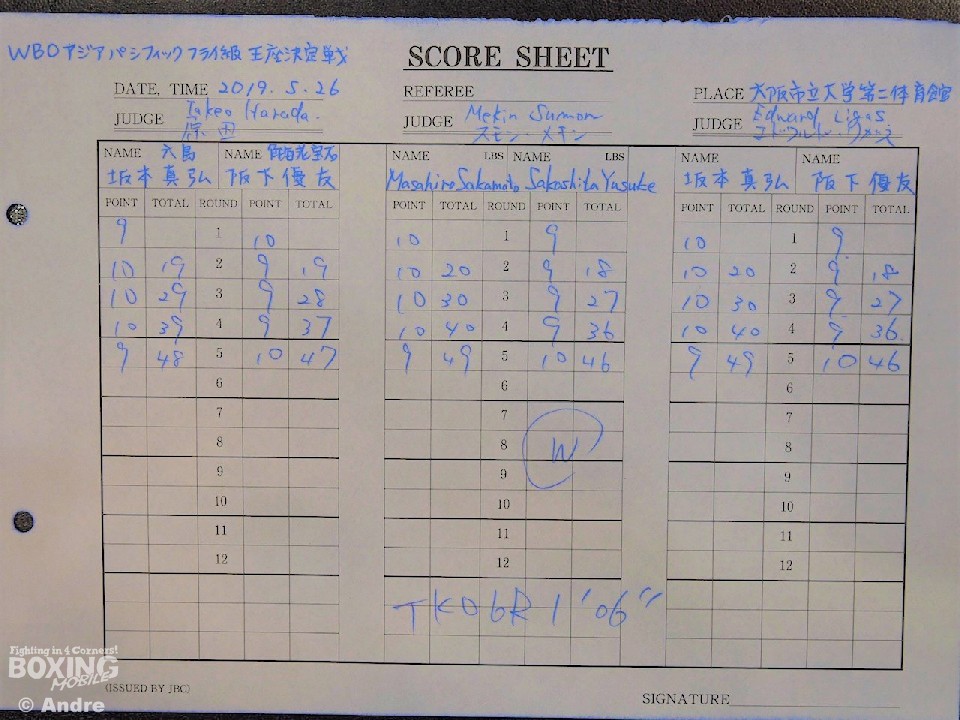 WBO アジアパシフィックフライ級 王座決定戦
SCORE SHEET
DATE, TIME 2019. 5. 26
REFEREE
PLACE 大阪市立大学第二体育館
JUDGE Takeo Harada.
原田
JUDGE Mekin Sumon
スモン・メキン
JUDGE Edward Ligas
エドワルド・リガス
NAME 六島 NAME
坂本 真弘 阪下 優友
NAME LBS NAME LBS
Masahiro Sakamoto Sakashita Yusuke
NAME NAME
坂本 真弘 阪下 優友
POINT TOTAL ROUND POINT TOTAL POINT TOTAL ROUND POINT TOTAL POINT TOTAL ROUND POINT TOTAL
9 1 10 10 1 9 10 1 9
10 19 2 9 19 10 20 2 9 18 10 20 2 9 18
10 29 3 9 28 10 30 3 9 27 10 30 3 9 27
10 39 4 9 37 10 40 4 9 36 10 40 4 9 36.
9 48 5 10 47 9 49 5 10 46 9 49 5 10 46
6 6 6
7 7 7
8 8 W 8
9 9 9
10 10 10
11 11 11
12 12 12
TKO 6R 1'06"
Fighting in 4 Corners!
BOXING
MOBILE
(ISSUED BY JBC)
SIGNATURE
© Andre